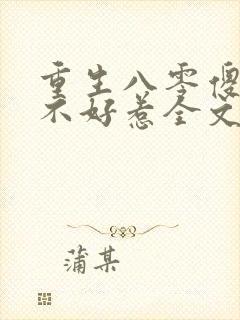 重生八零傻
不好惹全文
蒲某